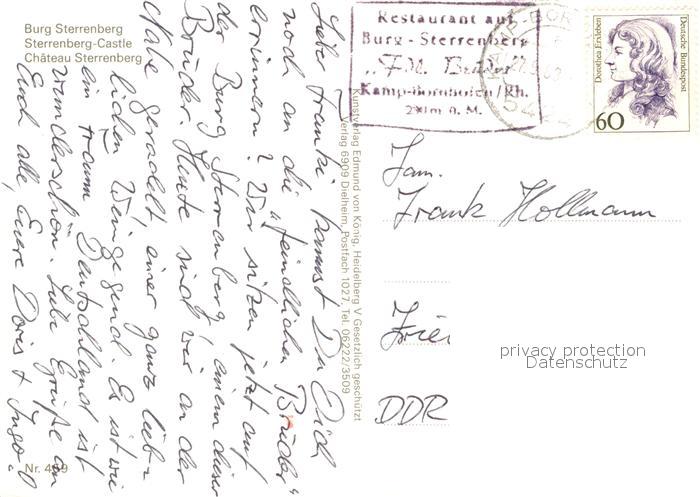 Burg Sterrenberg
Sterrenberg-Castle
Château Sterrenberg
Liebe Franki, kannst Du Dich
noch an die "feindlichen Brüder"
erinnern? Wir sitzen jetzt auf
der Burg Sterrenberg, einem dieser
Brüder. Heute sind wir an der
Nahe geradelt, einer ganz lieb-
lichen Weingegend. Es ist wie
ein Traum. Deutschland ist
wunderschön. Liebe Grüße an
Euch alle, Eure Doris + Ingo
Nr. 469
Kunstverlag Edmund von König, Heidelberg V Gesetzlich geschützt
Verlag 6909 Dielheim, Postfach 1027, Tel. 06222/3509
Restaurant auf
Burg-Sterrenberg
Kamp-Bornhofen/Rh.
Dorothea Erxleben
Deutsche Bundespost
60
Fam.
Frank Hollmann
DDR
privacy protection
Datenschutz